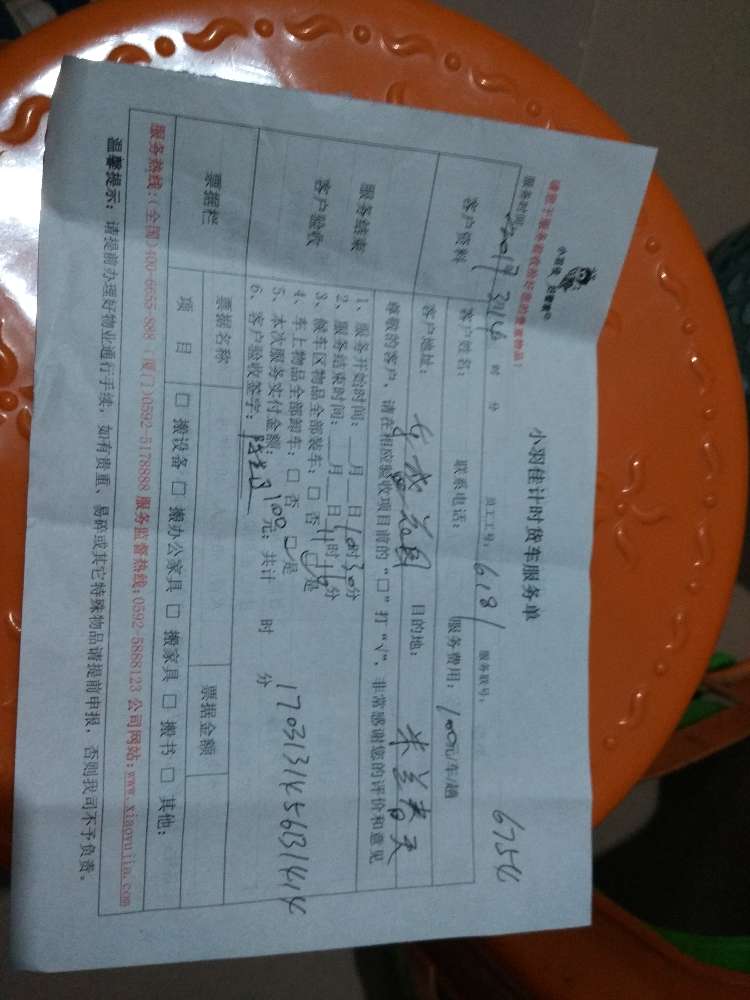 小羽佳 好管家
请致于服务前收拾好您的贵重物品！
小羽佳计时货车服务单
服务时间：2017 3 14 时 分 员工工号：6181 服务联号： 6754
客户资料 客户姓名： 联系电话： 服务费用：100元/车/趟
客户地址： 目的地：米兰春天
尊敬的客户，请在相应验收项目前的“□”打“√”，非常感谢您的评价和意见
服务结束
客户验收
1、服务开始时间：__月__日10时30分
2、服务结束时间：__月__日11时 分
3、候车区物品全部装车：□ 否 □ 是
4、车上物品全部卸车：□ 否 □ 是
5、本次服务实付金额：100元；共计 时 分
6、客户验收签字：
170313145631414
票据栏 票据名称 票据金额
项 目 □ 搬设备 □ 搬办公家具 □ 搬家具 □ 搬书 □ 其他：
服务热线：（全国）400-6655-888（厦门）0592-5178888 服务监督热线：0592-5888123 公司网站：www.xiaoyujia.com
温馨提示：请提前办理好物业通行手续，如有贵重、易碎或其它特殊物品请提前申报，否则我司不予负责。